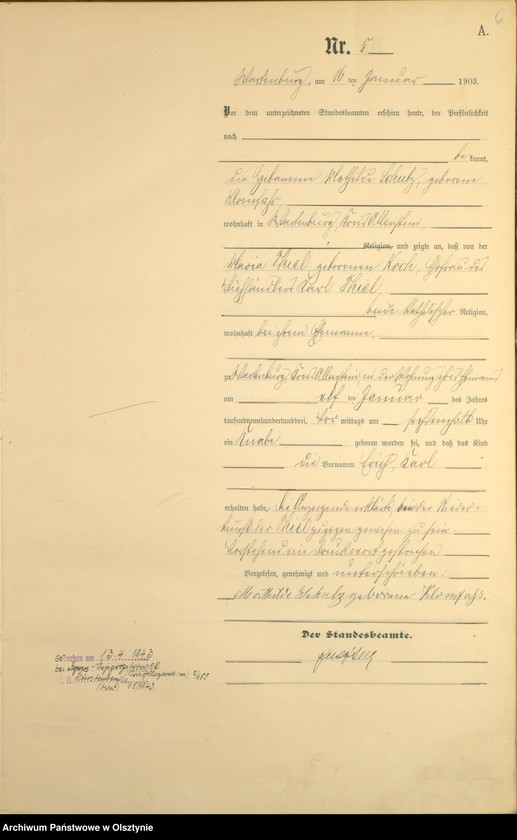 6
A.
Nr. 5
Wartenburg, am 16 ten Januar 1903.
Vor dem unterzeichneten Standesbeamten erschien heute, der Persönlichkeit
nach
be kannt,
die Hebamme Mathilde Schulz, geborene
Klomfaß,
wohnhaft in Wartenburg Kreis Allenstein,
Religion, und zeigte an, daß von der
Maria Thiel, geborenen Koch, Ehefrau des
Viehhändlers Karl Thiel,
beide katholischer Religion,
wohnhaft bei ihrem Ehemanne,
zu Wartenburg Kreis Allenstein, in der Wohnung ihres Ehemanns
am elf ten Januar des Jahres
tausendneunhundertunddrei, Vor mittags um Uhr
ein Knabe geboren worden sei, und daß das Kind
die Vornamen Erich, Karl
erhalten habe. Die Anzeigende erklärte, bei der Nieder-
kunft der Thiel zugegen gewesen zu sein.
Vorstehend ein Druckwort gestrichen
Vorgelesen, genehmigt und unterschrieben.
Mathilde Schulz geborene Klomfaß.
Der Standesbeamte.
Gestorben am 13.4.1943
bei
Archiwum Państwowe w Olsztynie